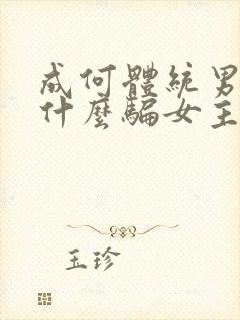 成何體統男
什麼騙女主
玉珍